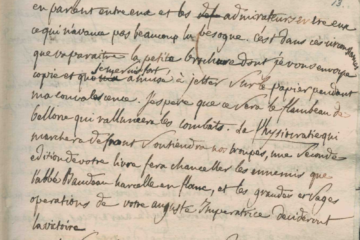 13.
en parlant entr'eux et les admirateurs entre eux
ce qui n'avance pas beaucoup la besogne. C'est dans ces circons
que va paraitre la petite brochure dont je vous envoye
copie et que a jetter sur le papier pendant
ma convalescence. J'espere que ce sera le flambeau de
bellone qui rallumera les combats. de Physiocratie qui
marchera devant soutiendra nos troupes, une seconde
edition de votre livre fera chanceller les ennemis que
l'abbé Baudeau harcelle en flanc, et les grandes et sages
operations de votre auguste Imperatrice decideront
la victoire